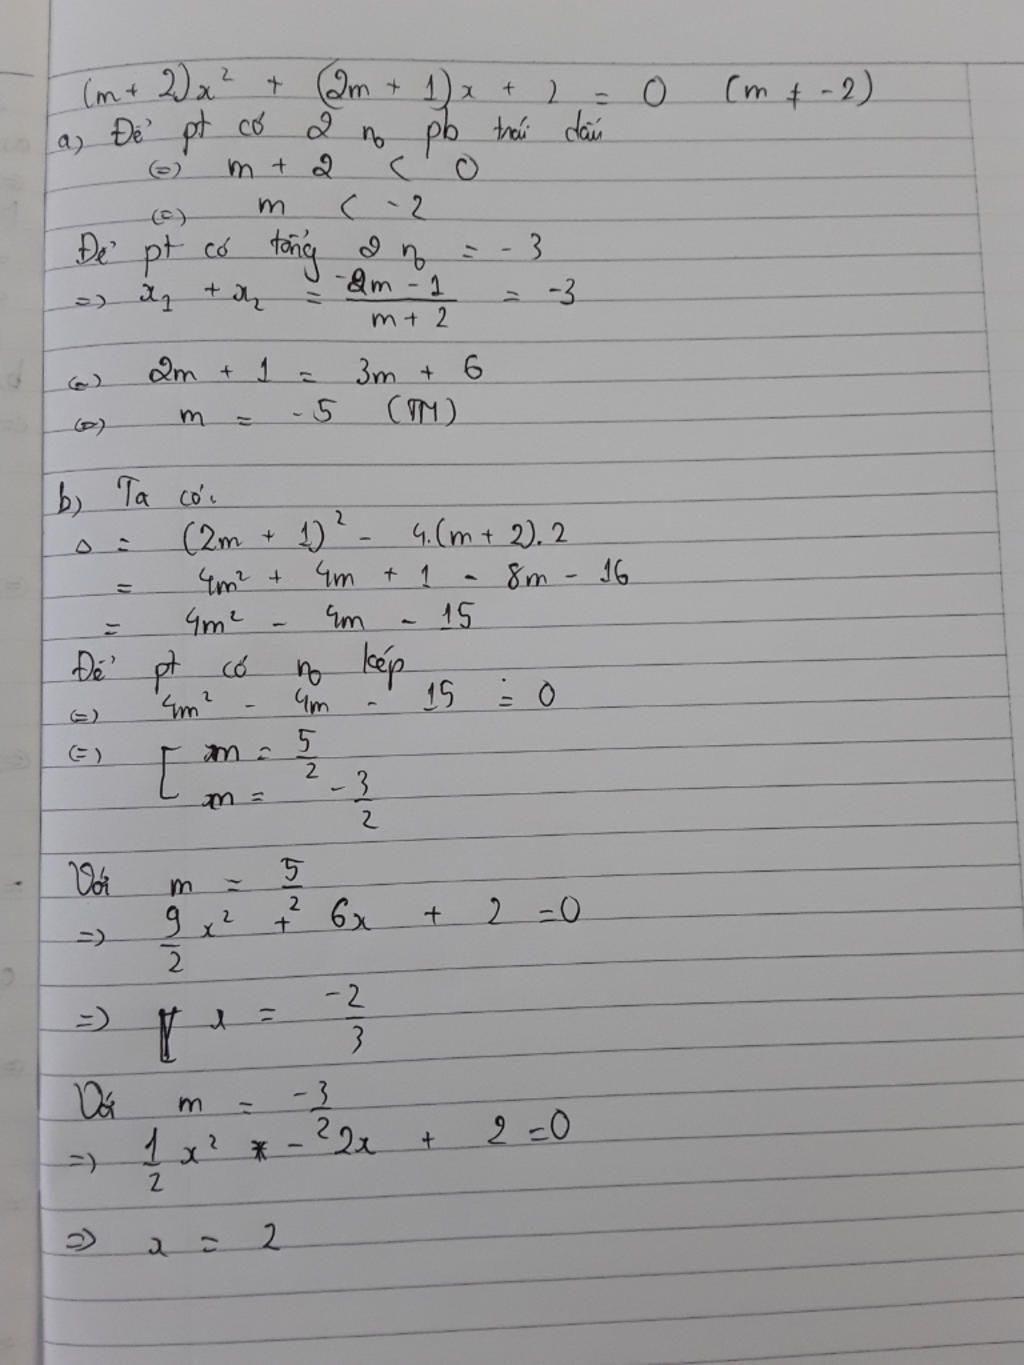 (m + 2)x² + (2m + 1)x + 2 = 0 (m ≠ -2)
a) Để pt có 2 no pb trái dấu
(=) m + 2 < 0
(=) m < -2
Để pt có tổng 2 no = -3
=> x₁ + x₂ = (-2m - 1)/(m + 2) = -3
(=) 2m + 1 = 3m + 6
(=) m = -5 (TM)
b) Ta có:
Δ = (2m + 1)² - 4.(m + 2).2
= 4m² + 4m + 1 - 8m - 16
= 4m² - 4m - 15
Để pt có no kép
(=) 4m² - 4m - 15 = 0
(=) [ m = 5/2
m = -3/2
Với m = 5/2
=> 9/2 x² + 6x + 2 = 0
=> x = -2/3
Với m = -3/2
=> 1/2 x² - 2x + 2 = 0
=> x = 2